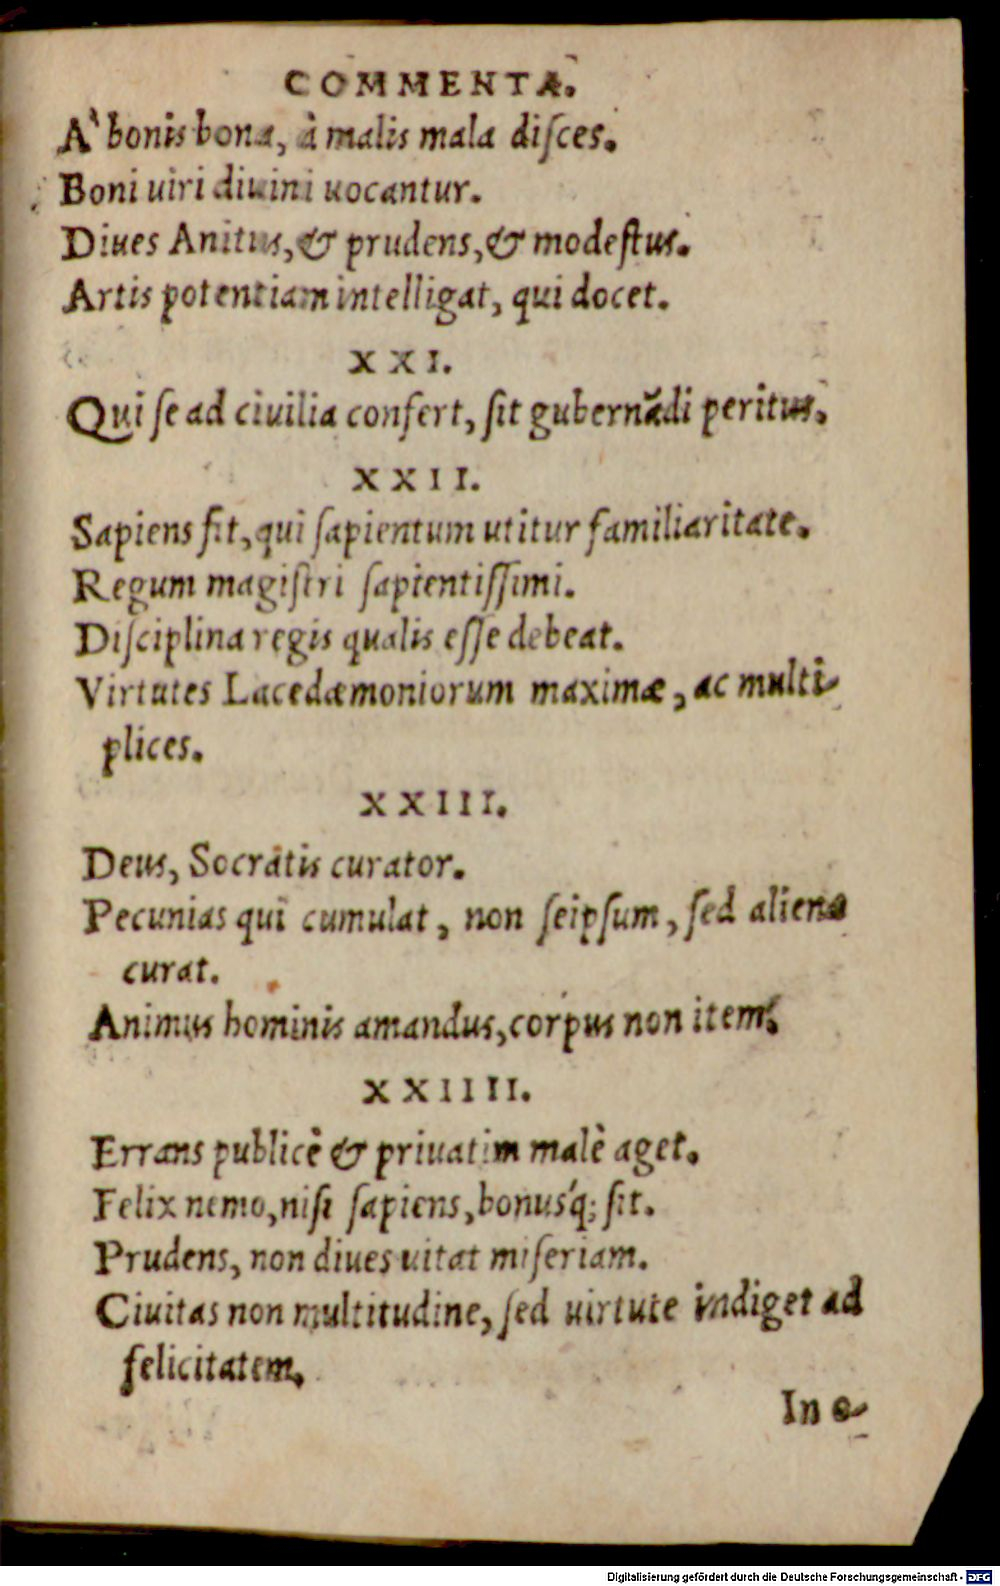 COMMENTA.
A' bonis bona, à malis mala disces.
Boni uiri diuini uocantur.
Diues Anitus, & prudens, & modestus.
Artis potentiam intelligat, qui docet.
XXI.
Qui se ad ciuilia confert, sit gubernãdi peritus.
XXII.
Sapiens fit, qui sapientum utitur familiaritate.
Regum magistri sapientissimi.
Disciplina regis qualis esse debeat.
Virtutes Lacedæmoniorum maximæ, ac multi-
plices.
XXIII.
Deus, Socratis curator.
Pecunias qui cumulat, non seipsum, sed aliena
curat.
Animus hominis amandus, corpus non item.
XXIIII.
Errans publicè & priuatim malè aget.
Felix nemo, nisi sapiens, bonusq́; sit.
Prudens, non diues uitat miseriam.
Ciuitas non multitudine, sed uirtute indiget ad
felicitatem.
In e-
Digitalisierung gefördert durch die Deutsche Forschungsgemeinschaft - DFG